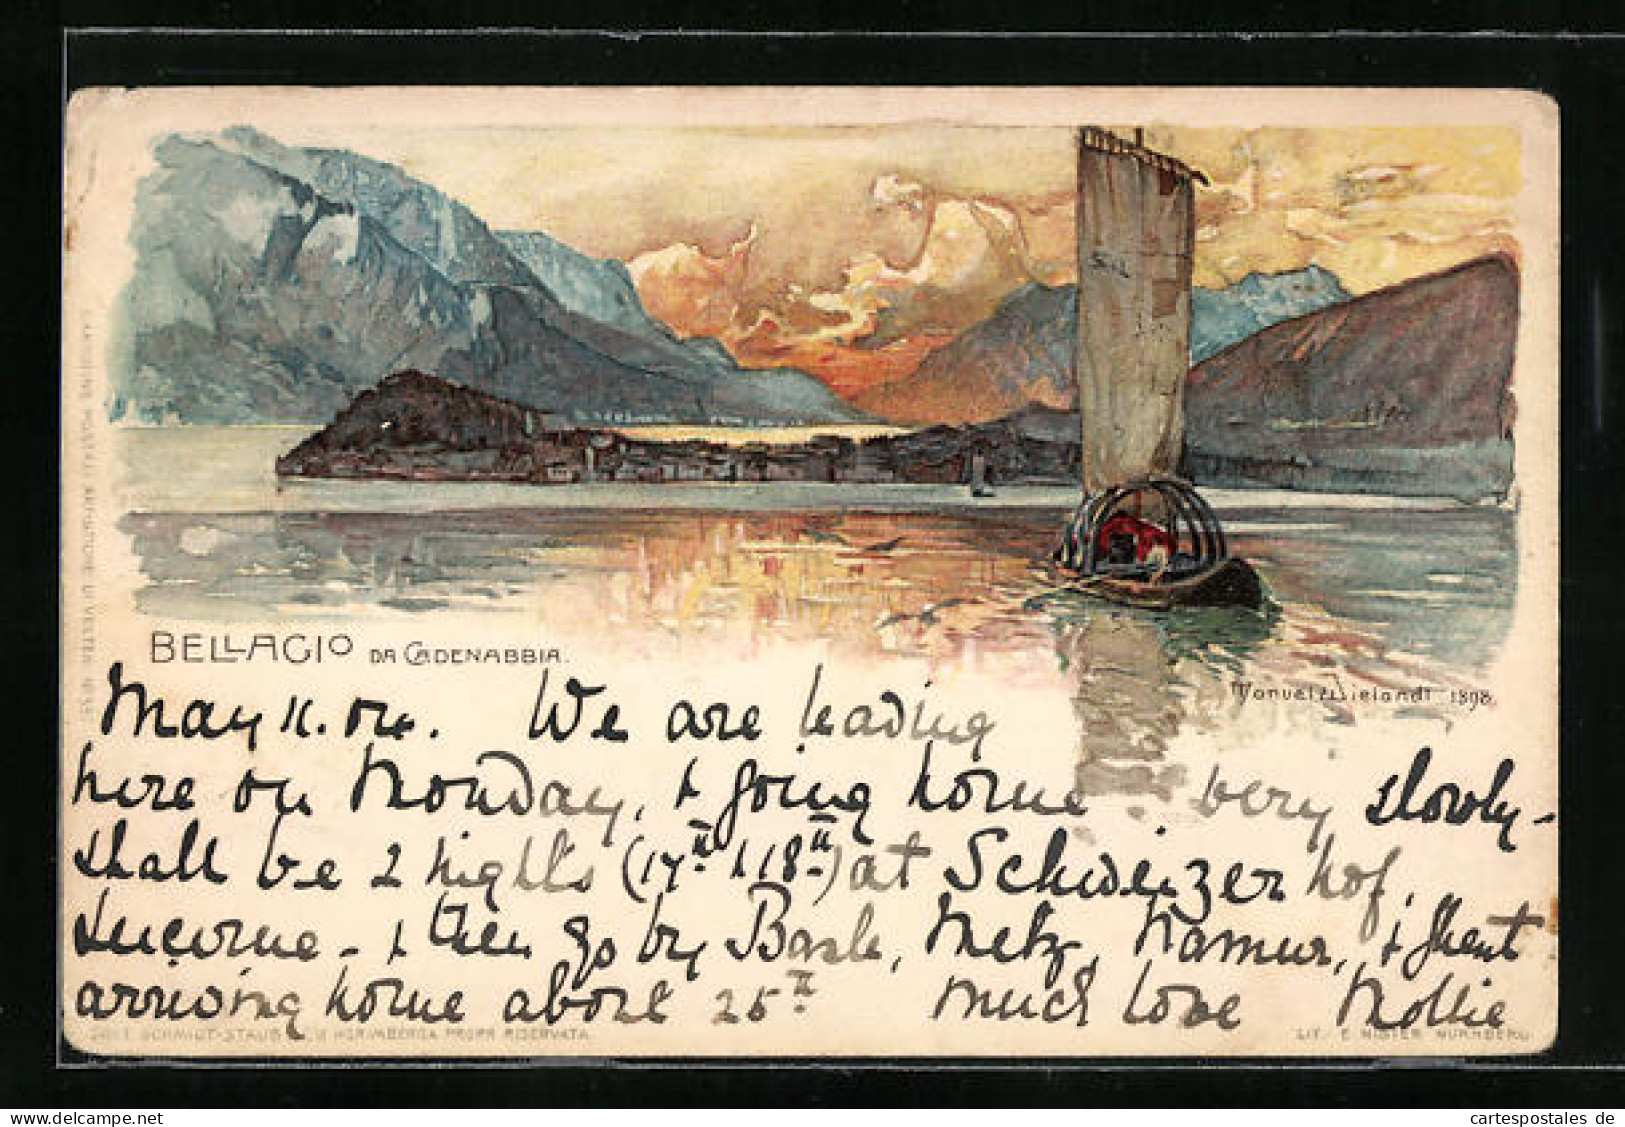 BELLAGIO DA CADENABBIA.
Manuel Wielandt 1898.
May 11. We are leaving
here on Monday, & going home very slowly -
shall be 2 nights (17th & 18th) at Schweizer hof,
Lucerne - & then go by Basle, Metz, Namur, & Ghent
arriving home about 25th Much love Mollie
SCHMIDT-STAUB NORIMBERGA PROPR. RISERVATA.
LIT. E. NISTER NÜRNBERG
cartespostales de